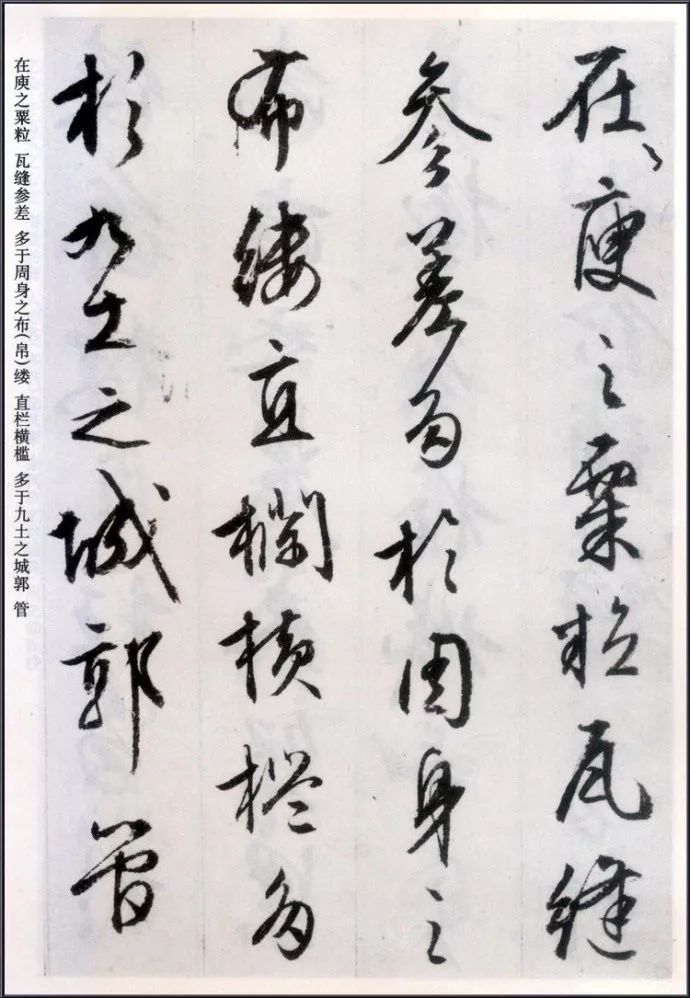 在庾之粟粒瓦縫
參差多於周身之
布縷直欄橫檻多
於九土之城郭管
在庾之粟粒 瓦缝参差 多于周身之布(帛)缕 直栏横槛 多于九土之城郭 管